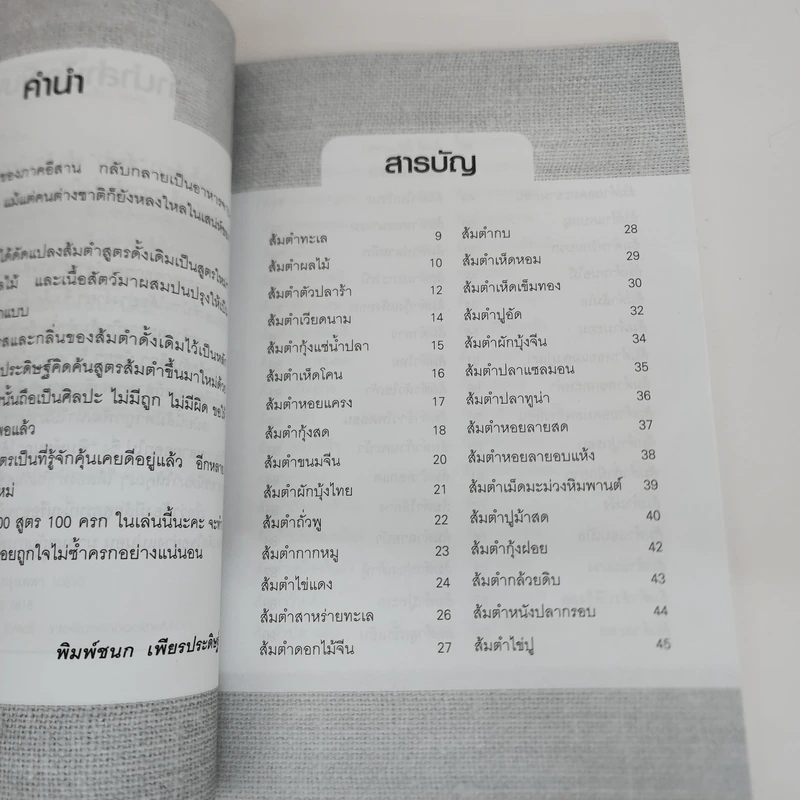 คำนำ
ของภาคอีสาน กลับกลายเป็นอาหาร
แม้แต่คนต่างชาติก็ยังหลงใหลในเสน่ห์
ได้ดัดแปลงส้มตำสูตรดั้งเดิมเป็นสูตร
และเนื้อสัตว์มาผสมปนปรุงให้
และกลิ่นของส้มตำดั้งเดิมไว้เป็น
ประดิษฐ์คิดค้นสูตรส้มตำขึ้นมาใหม่
นั้นถือเป็นศิลปะ ไม่มีถูก ไม่มีผิด ขอ
แล้ว
เป็นที่รู้จักคุ้นเคยดีอยู่แล้ว อีก
สูตร 100 ครก ในเล่มนี้นะคะ
ถูกใจไม่ซ้ำครกอย่างแน่นอน
พิมพ์ชนก เพียรประดิษฐ์
สารบัญ
ส้มตำทะเล 9
ส้มตำผลไม้ 10
ส้มตำตัวปลาร้า 12
ส้มตำเวียดนาม 14
ส้มตำกุ้งแช่น้ำปลา 15
ส้มตำเห็ดโคน 16
ส้มตำหอยแครง 17
ส้มตำกุ้งสด 18
ส้มตำขนมจีน 20
ส้มตำผักบุ้งไทย 21
ส้มตำถั่วพู 22
ส้มตำกากหมู 23
ส้มตำไข่แดง 24
ส้มตำสาหร่ายทะเล 26
ส้มตำดอกไม้จีน 27
ส้มตำกบ 28
ส้มตำเห็ดหอม 29
ส้มตำเห็ดเข็มทอง 30
ส้มตำปูอัด 32
ส้มตำผักบุ้งจีน 34
ส้มตำปลาแซลมอน 35
ส้มตำปลาทูน่า 36
ส้มตำหอยลายสด 37
ส้มตำหอยลายอบแห้ง 38
ส้มตำเม็ดมะม่วงหิมพานต์ 39
ส้มตำปูม้าสด 40
ส้มตำกุ้งฝอย 42
ส้มตำกล้วยดิบ 43
ส้มตำหนังปลากรอบ 44
ส้มตำไข่ปู 45